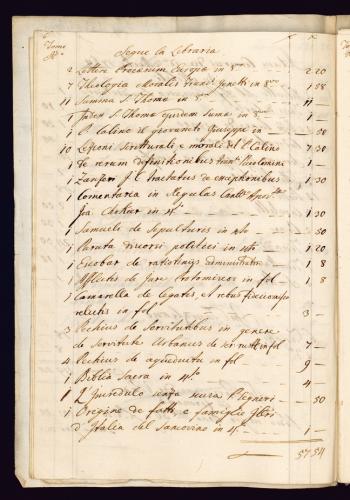 Tomo
No.
Segue la Libraria
2 Lettere Europa in 8vo 2 20
7 Theologia Moralis Franc. Genetti in 8vo 1 58
11 Summa S. Thome in 8vo 11 —
1 Index S. Thome ejusdem suma in 1 —
1 P. Calino il giovanetto Giuseppe in — 50
10 Lezioni Scritturali e morali del P. Calino 7 30
1 De rerum definitionibus Piccolomine 1 —
1 Zanferi J. C. tractatus de exceptionibus 1 30
1 Comentaria in Regulas
Joa. in 4o 1 30
1 Samueli de Sepulturis in 4to — 50
1 Paruta discorsi politici in 4to 1 20
1 Escobar de ratiotinijs administrator 1 8
1 Afflictus de Jure Protomiseos in fol 1 8
1 Camarella de legatis, et rebus
relictis in fol 3 —
3 Pechius de Servitutibus in genere
de Servitute Urbanis et in fol 7 —
4 Pechius de aqueductu in fol 9 —
1 Biblia Sacra in 4to 4 —
1 L'Incredulo senza scusa P. Segneri — 50
1 Origine de fatti, e famiglie Illri
d'Italia del Sansovino in 4o 1 —
57 54